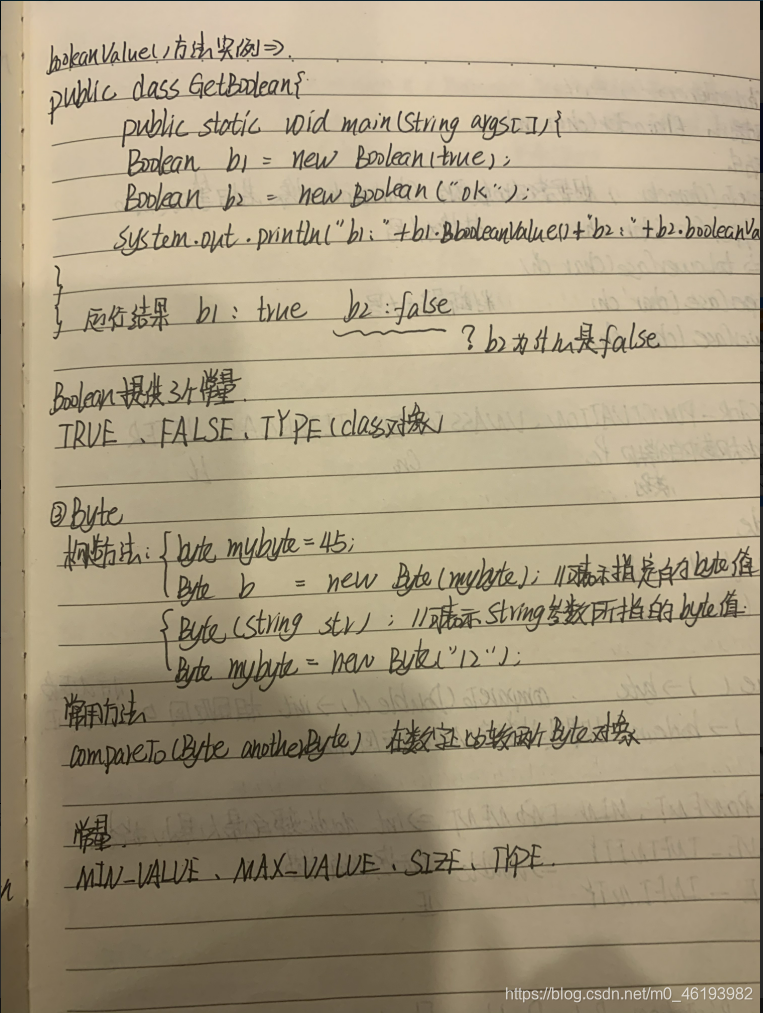 booleanValue()方法实例=>.
public class GetBoolean{
public static void main(String args[]){
Boolean b1 = new Boolean(true);
Boolean b2 = new Boolean("ok");
System.out.println("b1:"+b1.BbooleanValue()+"b2:"+b2.booleanVa
}
} 运行结果 b1: true b2:false
? b2为什么是false
Boolean提供3个常量.
TRUE、FALSE、TYPE(class对象)
③Byte
构造方法:{ byte mybyte=45;
Byte b = new Byte(mybyte); //表示指定的byte值
{ Byte(String str); //表示String参数所指的byte值.
Byte mybyte = new Byte("12");
常用方法
compareTo(Byte anotherByte) 在数字上比较两个Byte对象
常量.
MIN_VALUE、MAX_VALUE、SIZE、TYPE.
n
https://blog.csdn.net/m0_46193982